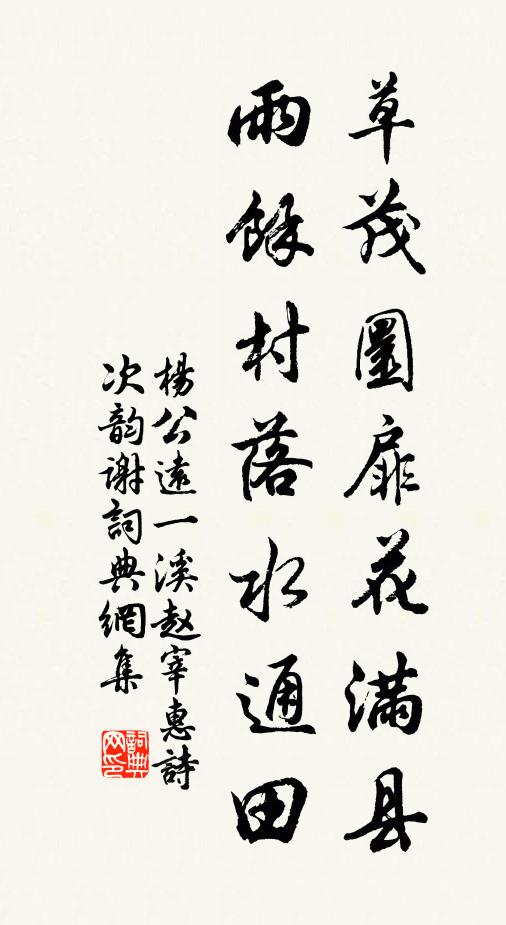 草茂圜扉花滿县
雨餘村落水通田
楊公遠一溪赵宰惠詩
次韵謝詞典網集
詞典网印